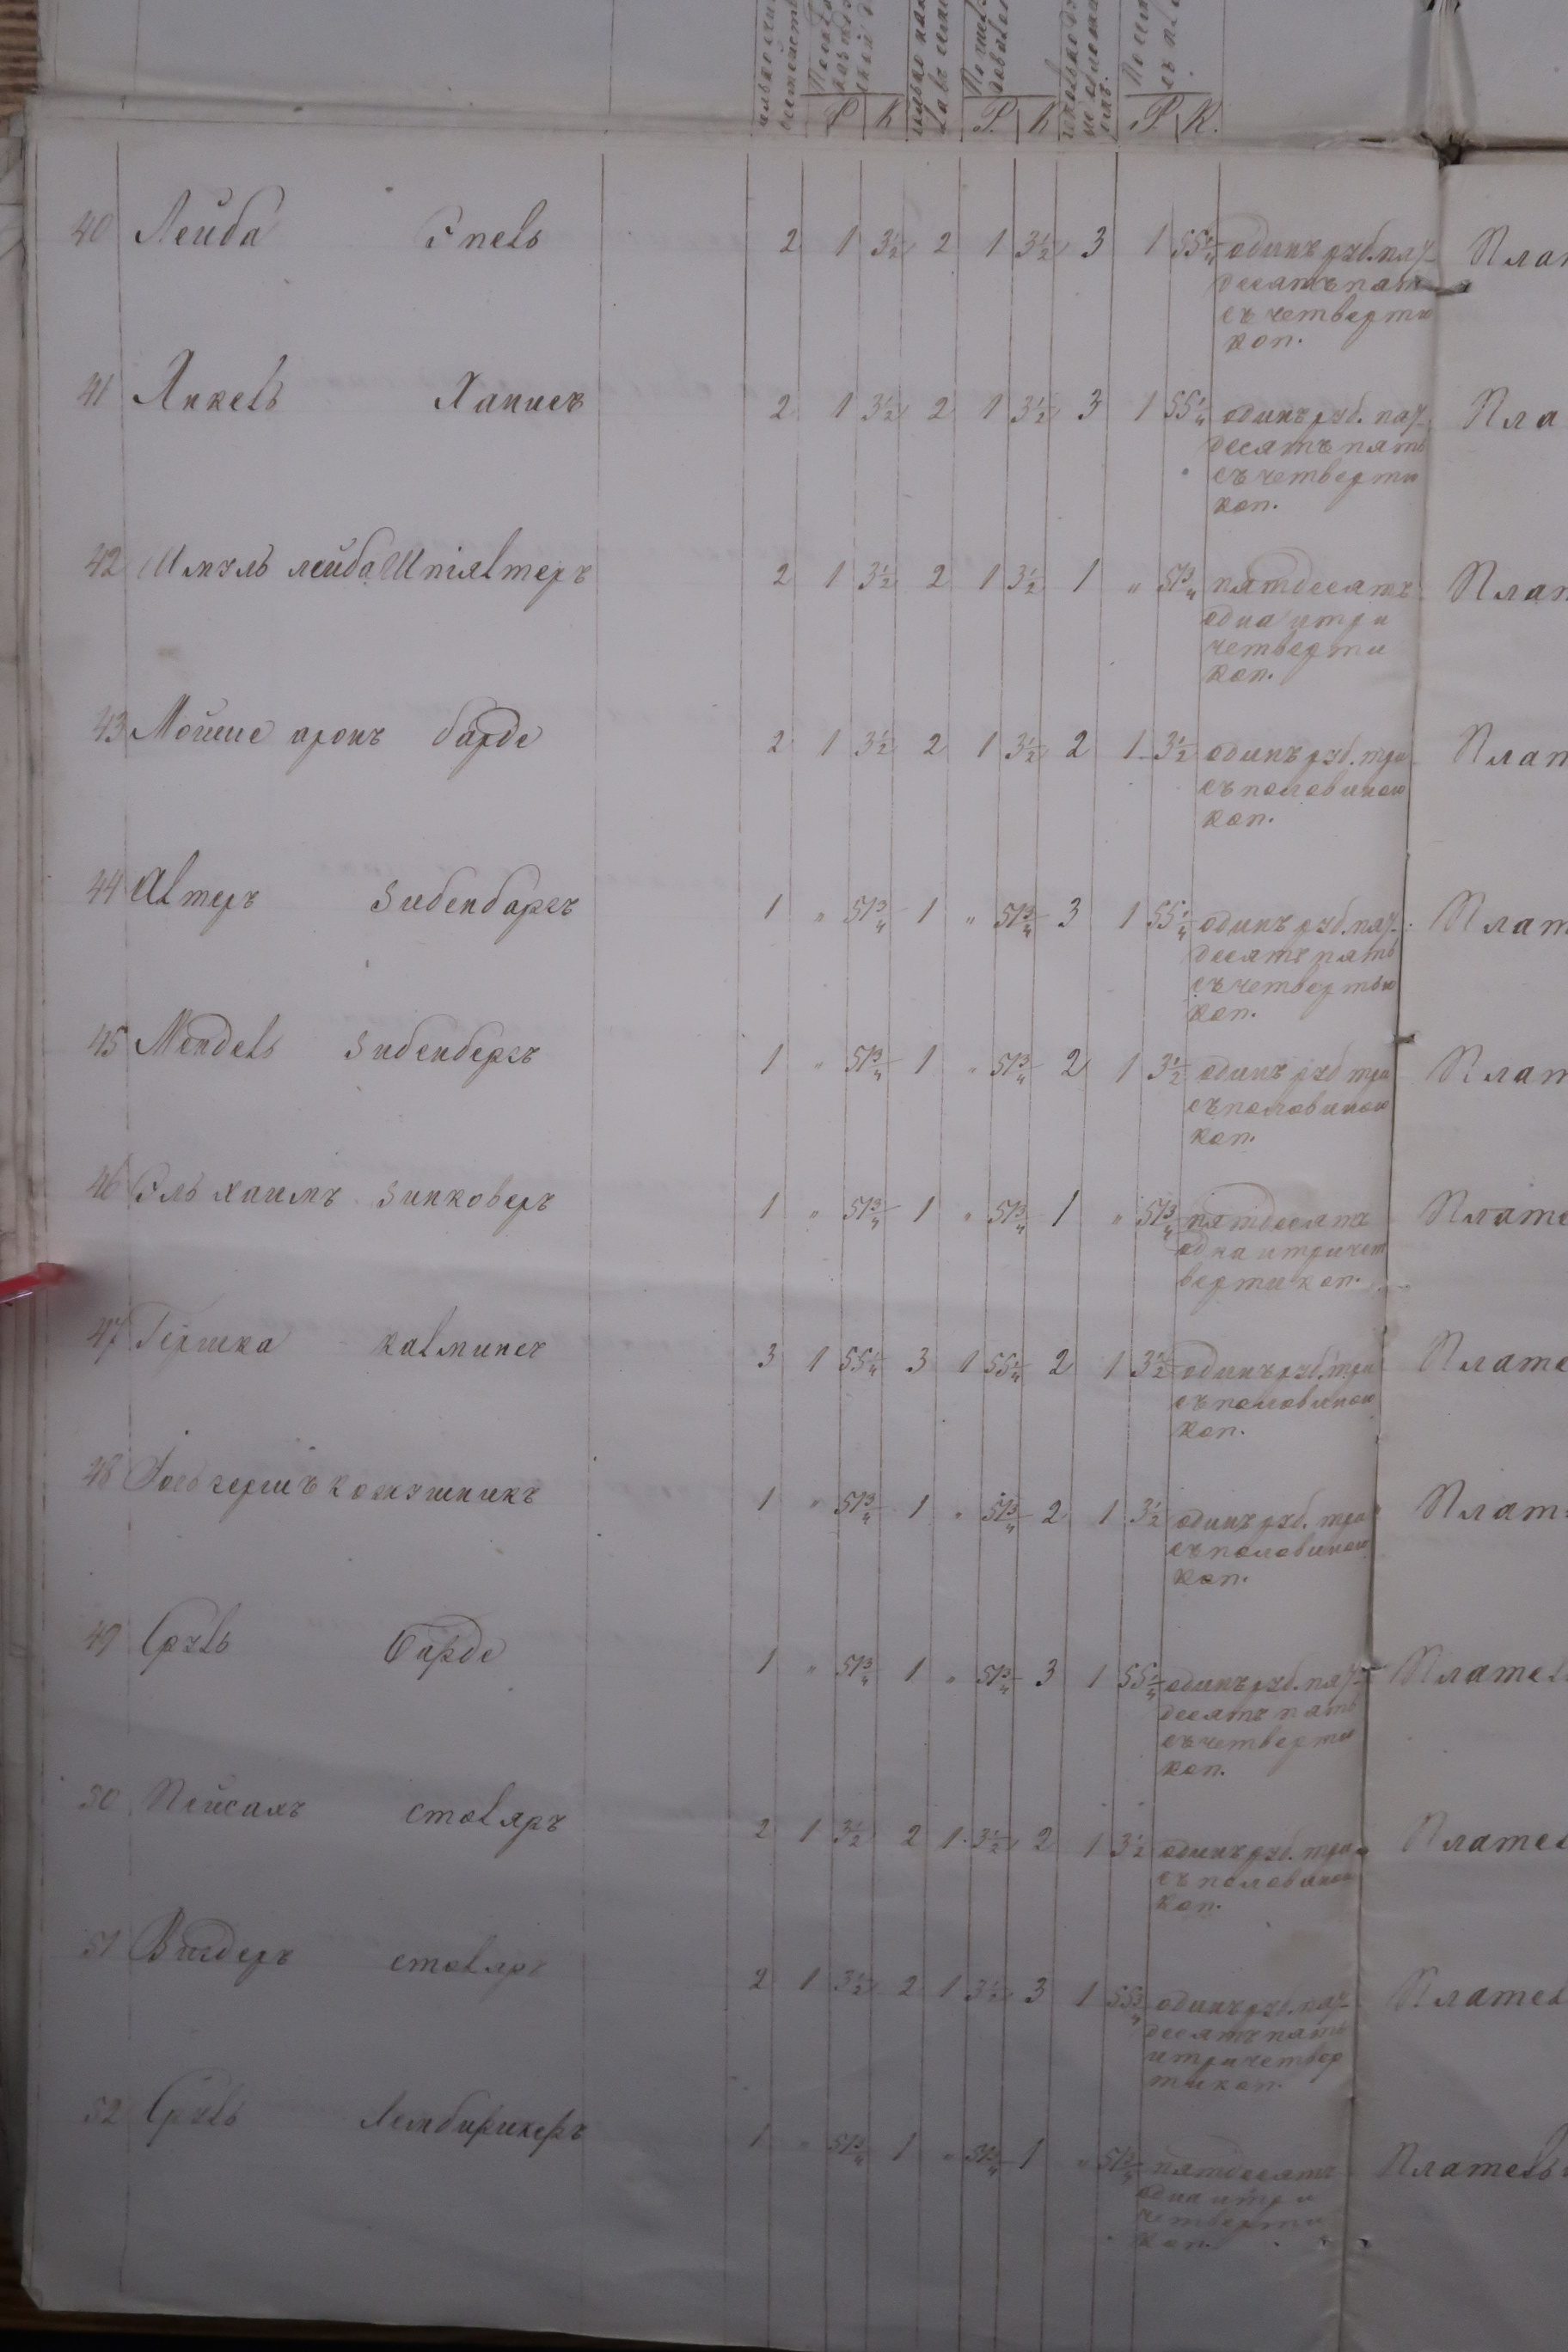 Р К Р. К Р. К.
40 Лейба Гпель 2 1 3½ 2 1 3½ 3 1 55¼ одинъ руб. пят- Плат
десятъ пять
съ четвертью
коп.
41 Янкель Хапиев 2 1 3½ 2 1 3½ 3 1 55¼ одинъ руб. пят- Пла
десятъ пять
съ четвертью
коп.
42 Шмуль лейба Шпіялтеръ 2 1 3½ 2 1 3½ 1 " 51¾ пятдесятъ Плат
одна и три
четверти
коп.
43 Мойше аронъ барде 2 1 3½ 2 1 3½ 2 1 3½ одинъ руб. три Плат
съ половиною
коп.
44 Алтеръ Зибенбаргъ 1 " 51¾ 1 " 51¾ 3 1 55¼ одинъ руб. пят- Плат
десятъ пять
съ четвертью
коп.
45 Мендель Зибенбергъ 1 " 51¾ 1 " 51¾ 2 1 3½ одинъ руб три Плат
съ половиною
коп.
46 хаимъ Зинковеръ 1 " 51¾ 1 " 51¾ 1 " 51¾ пятдесятъ Плате
одна и три чет
верти коп.
47 Гершка калминсъ 3 1 55¼ 3 1 55¼ 2 1 3½ одинъ руб. три Плате
съ половиною
коп.
48 гершъ кожушникъ 1 " 51¾ 1 " 51¾ 2 1 3½ одинъ руб. три Плат
съ половиною
коп.
49 Сруль барде 1 " 51¾ 1 " 51¾ 3 1 55¼ одинъ руб. пят- Плател
десятъ пять
съ четвертью
коп.
50 Пейсахъ столяръ 2 1 3½ 2 1 3½ 2 1 3½ одинъ руб. три Плател
съ половиною
коп.
51 столяръ 2 1 3½ 2 1 3½ 3 1 55¾ одинъ руб. пят- Плател
десятъ пять
и три четвер
ти коп.
52 Сруль Лембирикеръ 1 " 51¾ 1 " 51¾ 1 " 51¾ пятдесятъ Плателы
одна и три
четверти
коп.